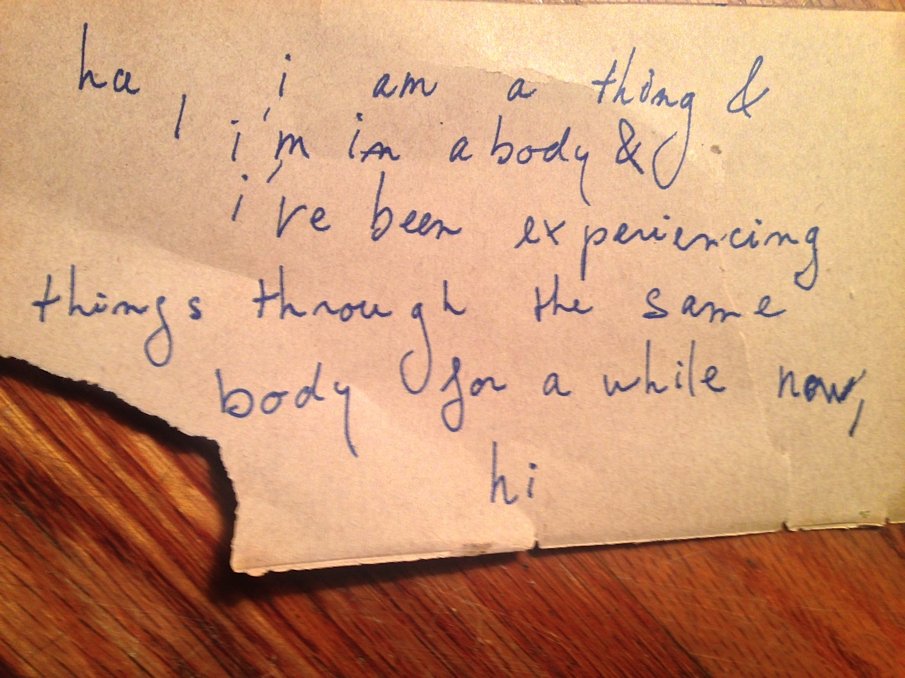 ha, i am a thing &
i'm in a body &
i've been experiencing
things through the same
body for a while now,
hi